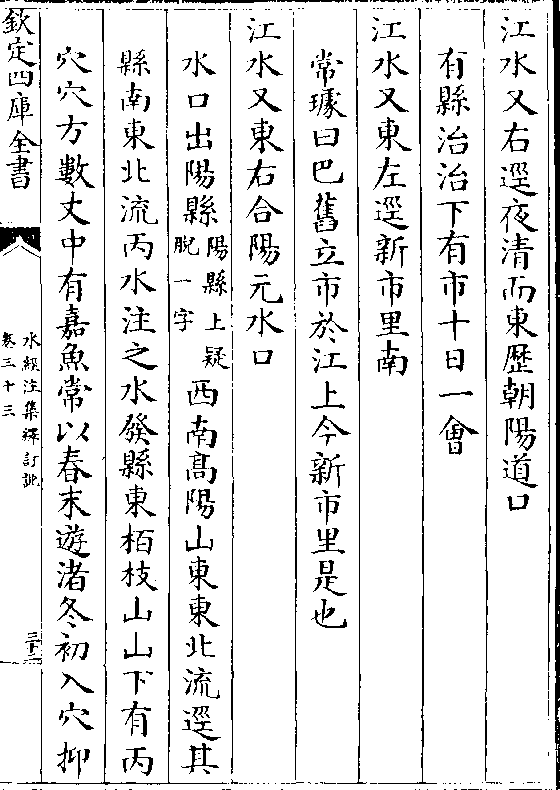 江水又右逕夜清而東歷朝陽道口
有縣治治下有市十日一會
江水又東左逕新市里南
常璩曰巴舊立市於江上今新市里是也
江水又東右合陽元水口
水口出陽縣陽縣上疑脫一字西南髙陽山東東北流逕其
縣南東北流丙水注之水發縣東栢枝山山下有丙
穴穴方數丈中有嘉魚常以春末遊渚冬初入穴抑
欽定四庫全書
水經注集釋訂訛
卷三十三